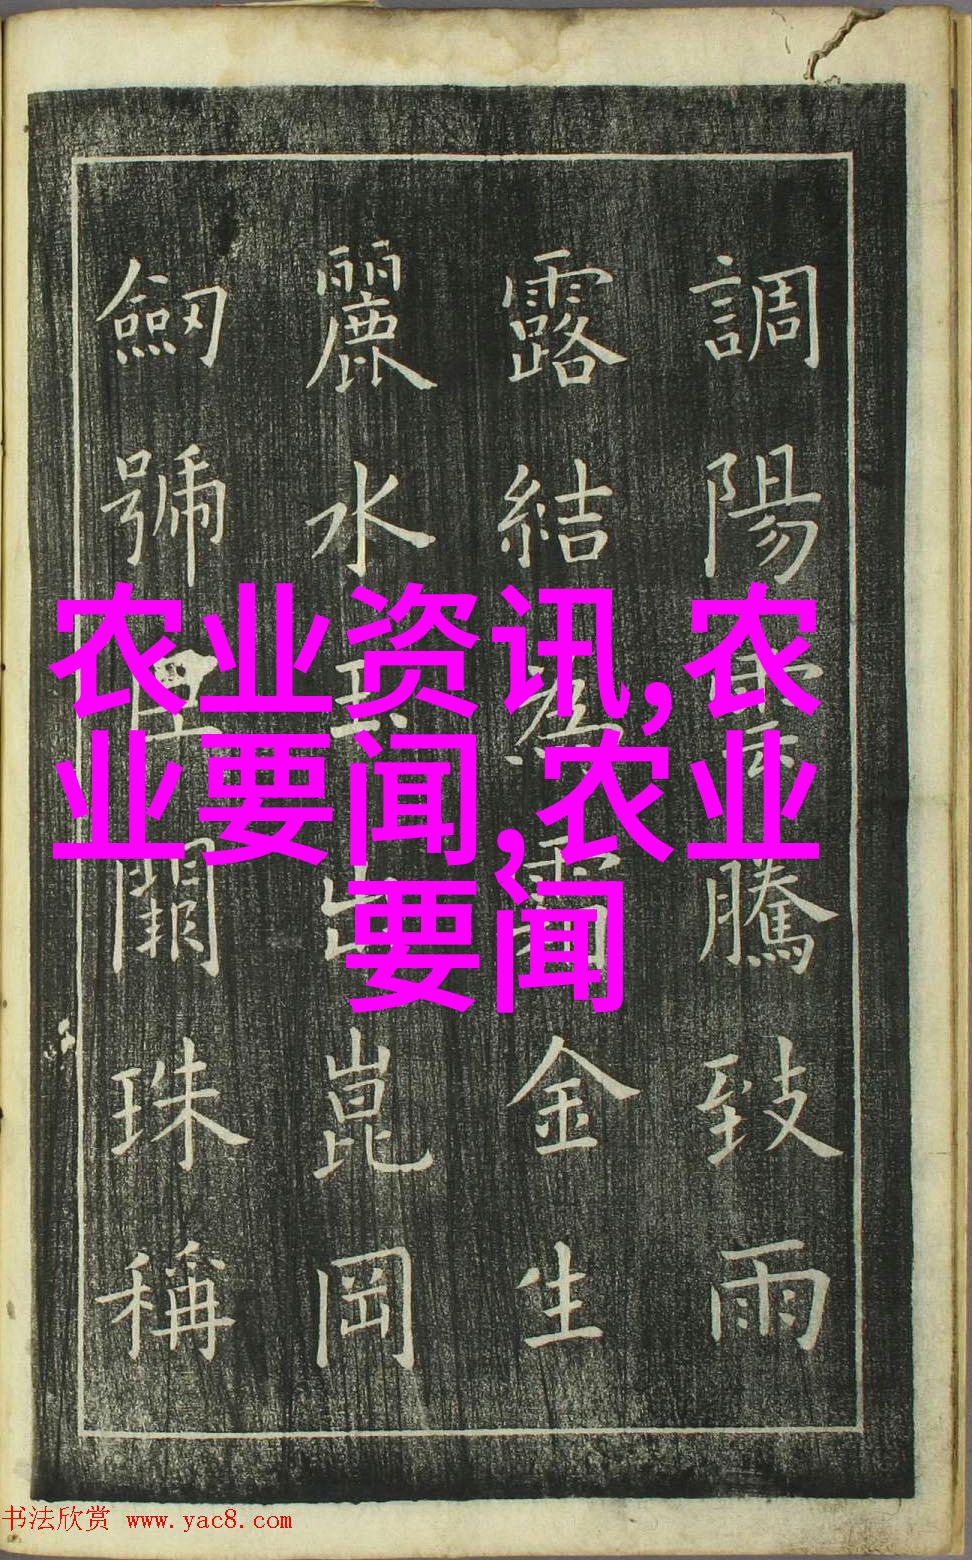 調陽雲騰致雨
露結為霜金生
麗水玉出崑岡
劒號巨闕珠稱
农业资讯,农
业要闻,农业
要闻
书法欣赏 www.yac8.com